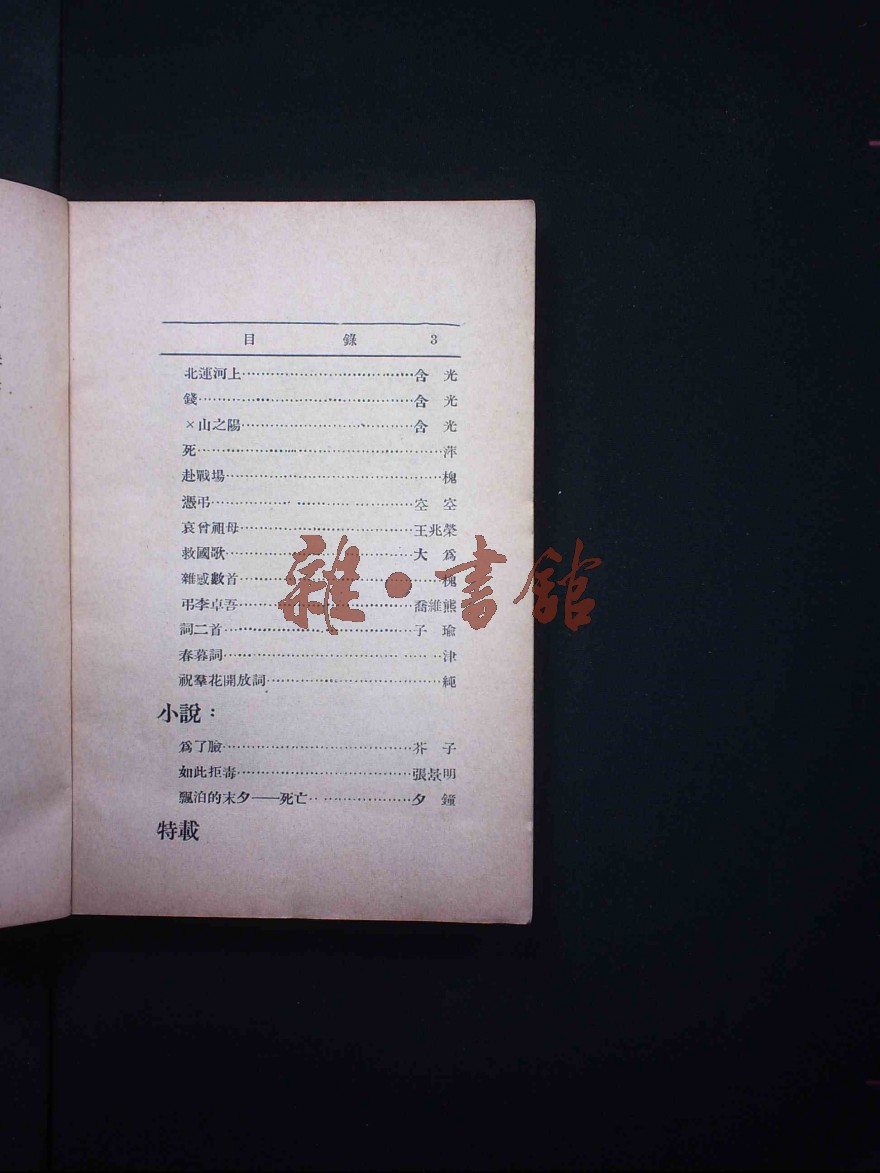 目錄 3
北運河上……含光
錢……含光
×山之陽……含光
死……萍
赴戰場……槐
憑弔……空空
哀曾祖母……王兆榮
救國歌……大為
雜感數首……槐
弔李卓吾……喬維熊
詞二首……子瑜
春暮詞……津
祝羣花開放詞……純
小說：
為了臉……芥子
如此拒毒……張景明
飄泊的末夕——死亡……夕鐘
特載
雜·書館